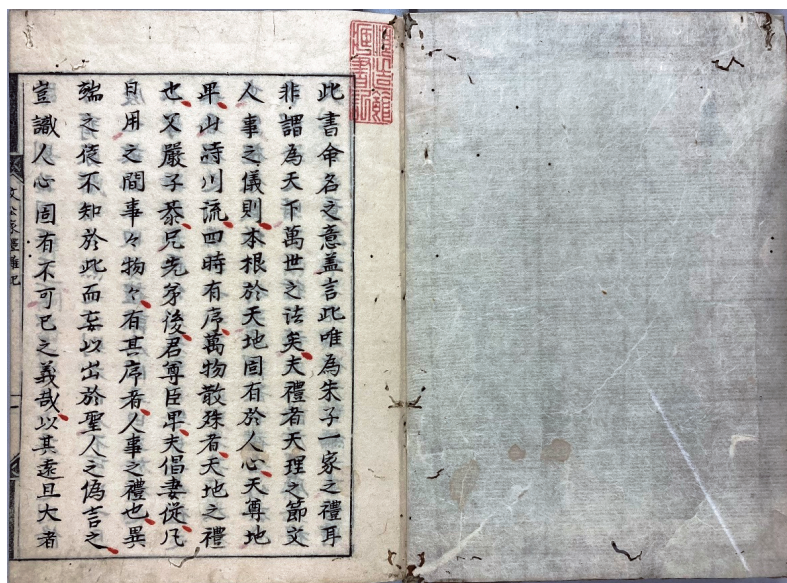 此書命名之意盖言此唯為朱子一家之禮耳
非謂為天下萬世之法矣夫禮者天理之節文
人事之儀則本根於天地固有於人心天尊地
卑山峙川流四時有序萬物散殊者天地之禮
也父嚴子恭兄先弟後君尊臣卑夫倡妻從凡
日用之間事々物々有其序者人事之禮也異
端之徒不知於此而妄以出於聖人之偽言之
豈識人心固有不可已之義哉以其遠且大者
文公家禮雜記